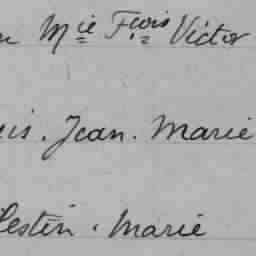 n Mie Fçois Victor
is. Jean. Marie
lestin. Marie